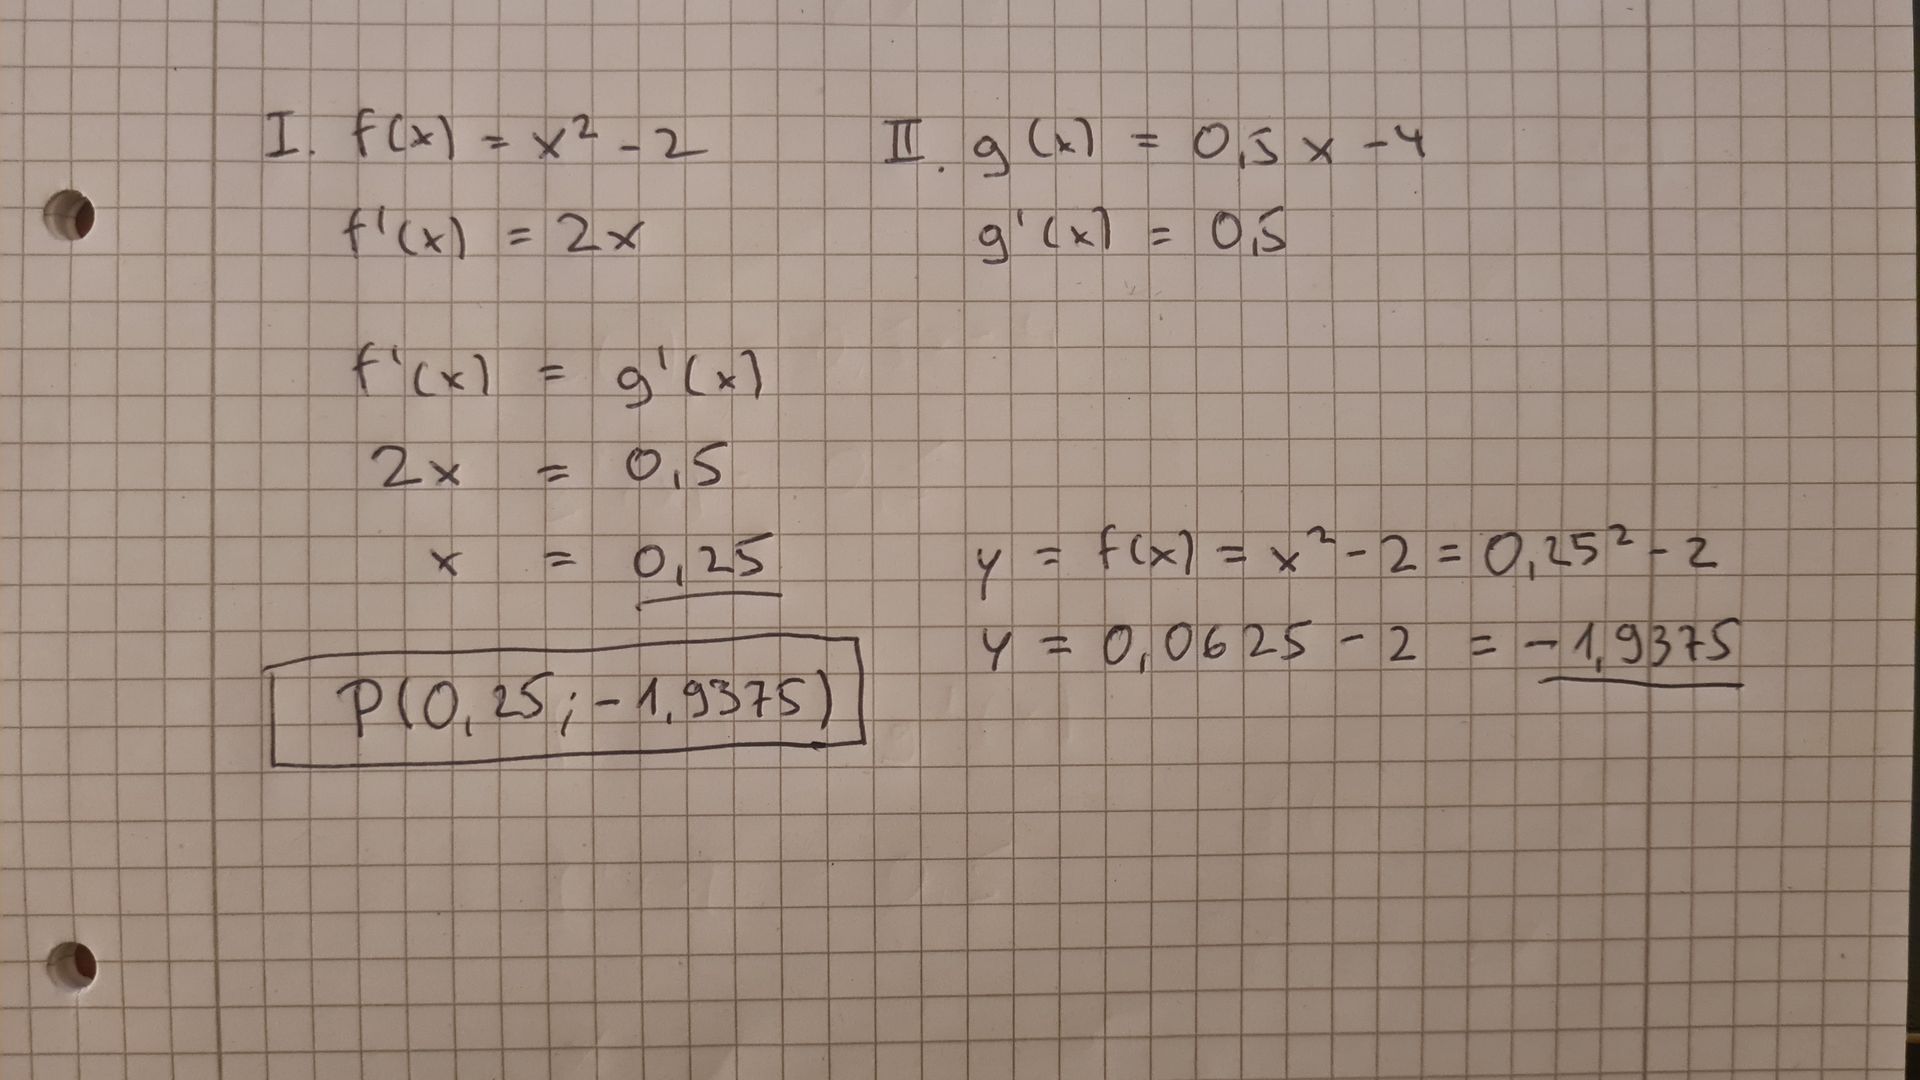 I. f(x) = x² - 2
II. g(x) = 0,5x - 4
f'(x) = 2x
g'(x) = 0,5
f'(x) = g'(x)
2x = 0,5
x = 0,25
y = f(x) = x² - 2 = 0,25² - 2
y = 0,0625 - 2 = -1,9375
P(0,25; -1,9375)